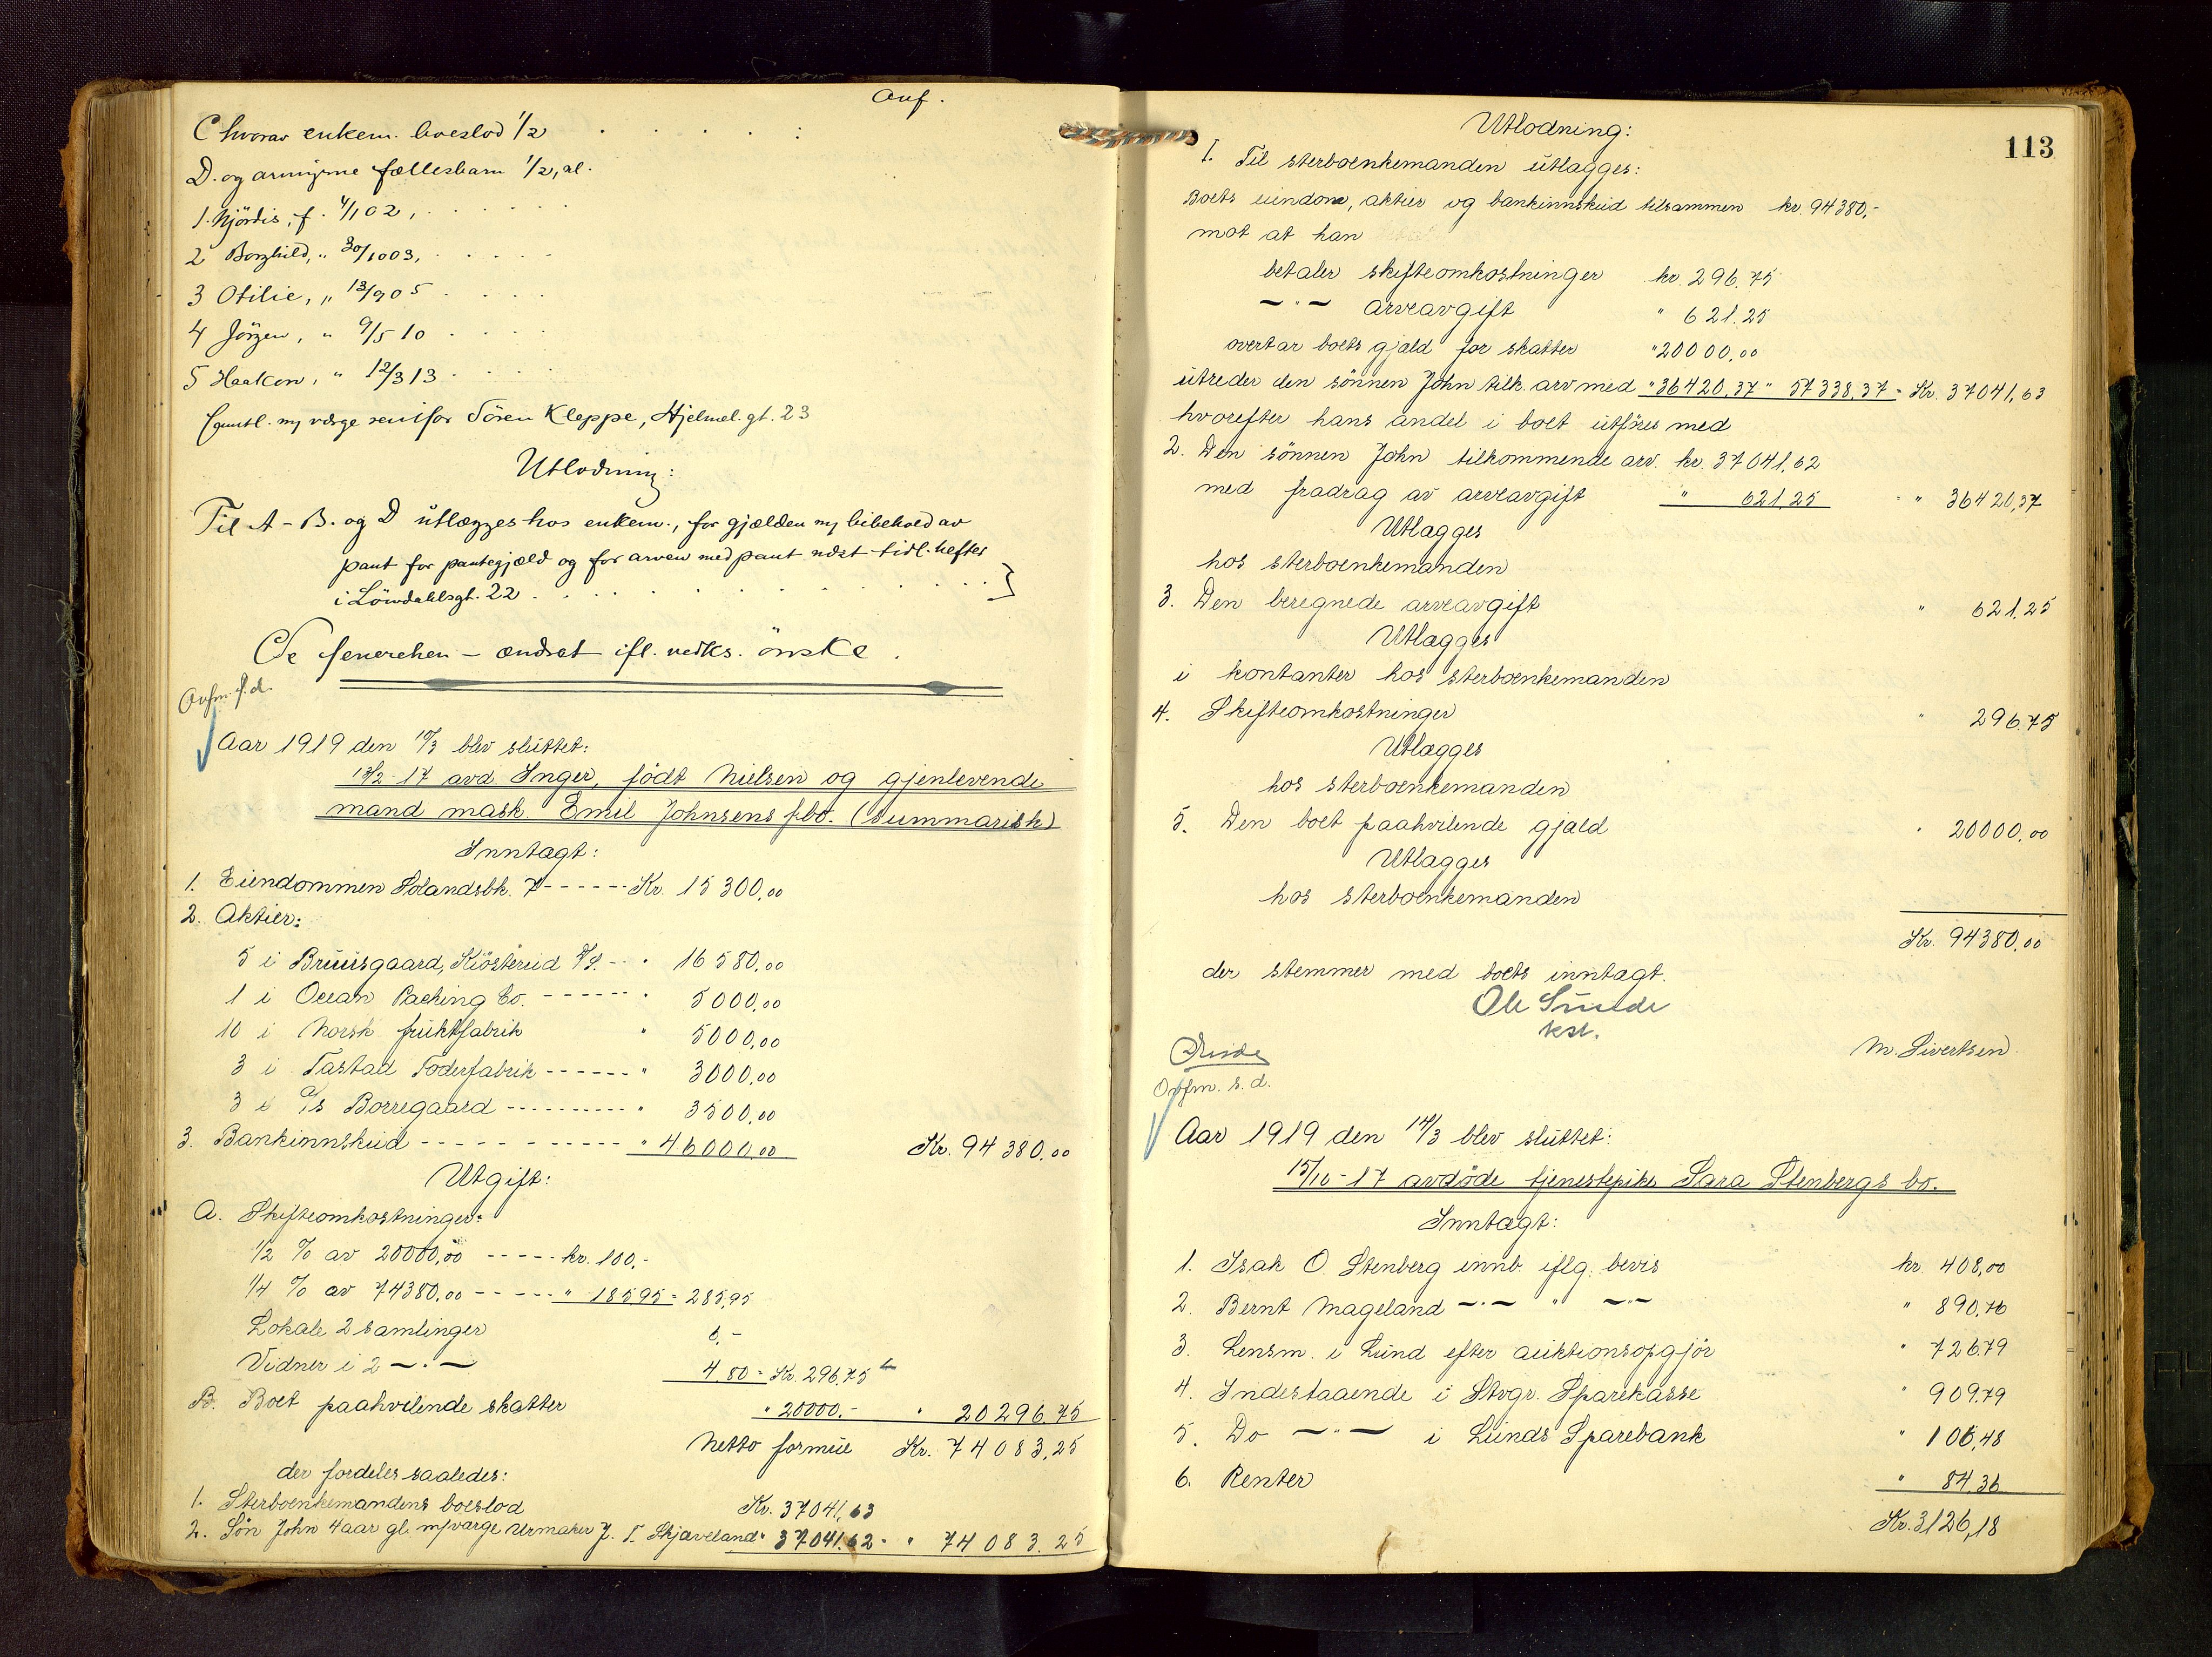 Anf.
C hvorav enkem. boeslod 1/2
D. og arvingerne fællesbarn 1/2, al.
1. Hjördis, f. 4/1 02,
2 Borghild, " 30/10 03,
3 Otilie, " 13/9 05
4 Jörgen, " 9/5 10
5 Haakon, " 12/3 13
samtl. m/ verge Sören Kleppe, Hjelmel. gt. 23
Utlodning:
Til A - B. og D utlægges hos enkem., for gjælden m/ bibehold av
pant for pantegjæld og for arven med pant næst tidl. heftes
i Lövdahlsgt. 22
Se senerehen - endret ifl. vedks. önske.
Avfm. s. d.
Aar 1919 den 10/3 blev sluttet:
13/2 - 17 avd. Inger, födt Nielsen og gjenlevende
mand mask. Emil Johnsens fbo. (summarisk)
Inntægt:
1. Eiendommen Solandsbk. 7 ------ Kr. 15 300,00
2. Aktier:
5 i Bruusgaard, Kiösterud A/S. -- " 16 580,00
1 i Ocean Packing Co. ------ " 5000,00
10 i Norsk fruktfabrik " 5000,00
3 i Tastad Foderfabrik ------ " 3000,00
3 i A/S Borregaard ---------- " 3500,00
3. Bankinnskud ----------- " 46000,00 Kr. 94 380,00
Utgift:
A. Skifteomkostninger:
1/2 % av 20000,00 ----- kr. 100,-
1/4 % av 74380,00 ----- " 185,95 = 285,95
Lokale 2 samlinger 6,-
Vidner i 2 — " — 4,80 = Kr. 296,75
B. Boet paahvilende skatter " 20000.- " 20296,75
Netto formue Kr. 74083,25
der fordeles saaledes:
1. Sterboenkemandens boeslod Kr. 37041,63
2. Sön John 4 aar gl. m/ værge urmaker J. T. Skjæveland " 37041.62 = " 74083.25
113
Utlodning:
1. Til sterboenkemanden utlægges:
Boets eiendom, aktier og bankinnskud tilsammen kr. 94380,-
mot at han
betaler skifteomkostninger kr. 296.75
— " — arveavgift " 621.25
overtar boets gjæld for skatter " 20000,00
utreder den sönnen John tilk. arv med " 36420,37 " 57338,37 = Kr. 37041,63
hvorefter hans andel i boet utföres med
2. Den sönnen John tilkommende arv. kr. 37041,62
med fradrag av arveavgift " 621,25 " 36420,37
Utlægges
hos sterboenkemanden
3. Den beregnede arveavgift " 621,25
Utlægges
i kontanter hos sterboenkemanden
4. Skifteomkostninger " 296.75
Utlægges
hos sterboenkemanden
5. Den boet paahvilende gjæld " 20000,00
Utlægges
hos sterboenkemanden
Kr. 94380,00
der stemmer med boets inntægt.
Ole Sunde
kst.
M. Sivertsen
Avfm. s. d.
Aar 1919 den 14/3 blev sluttet:
15/10 - 17 avdöde tjenestepike Sara Stenbergs bo.
Inntægt:
1. Isak O. Stenberg innb. iflg. bevis kr. 408,00
2. Bernt Mageland — " — " — " — " 890,76
3. Lensm. i Lund efter auktionsopgjör " 726.79
4. Indestaaende i Stvgr. Sparekasse " 909.79
5. Do — " — i Lunds Sparebank " 106,48
6. Renter " 84,36
Kr. 3126,18